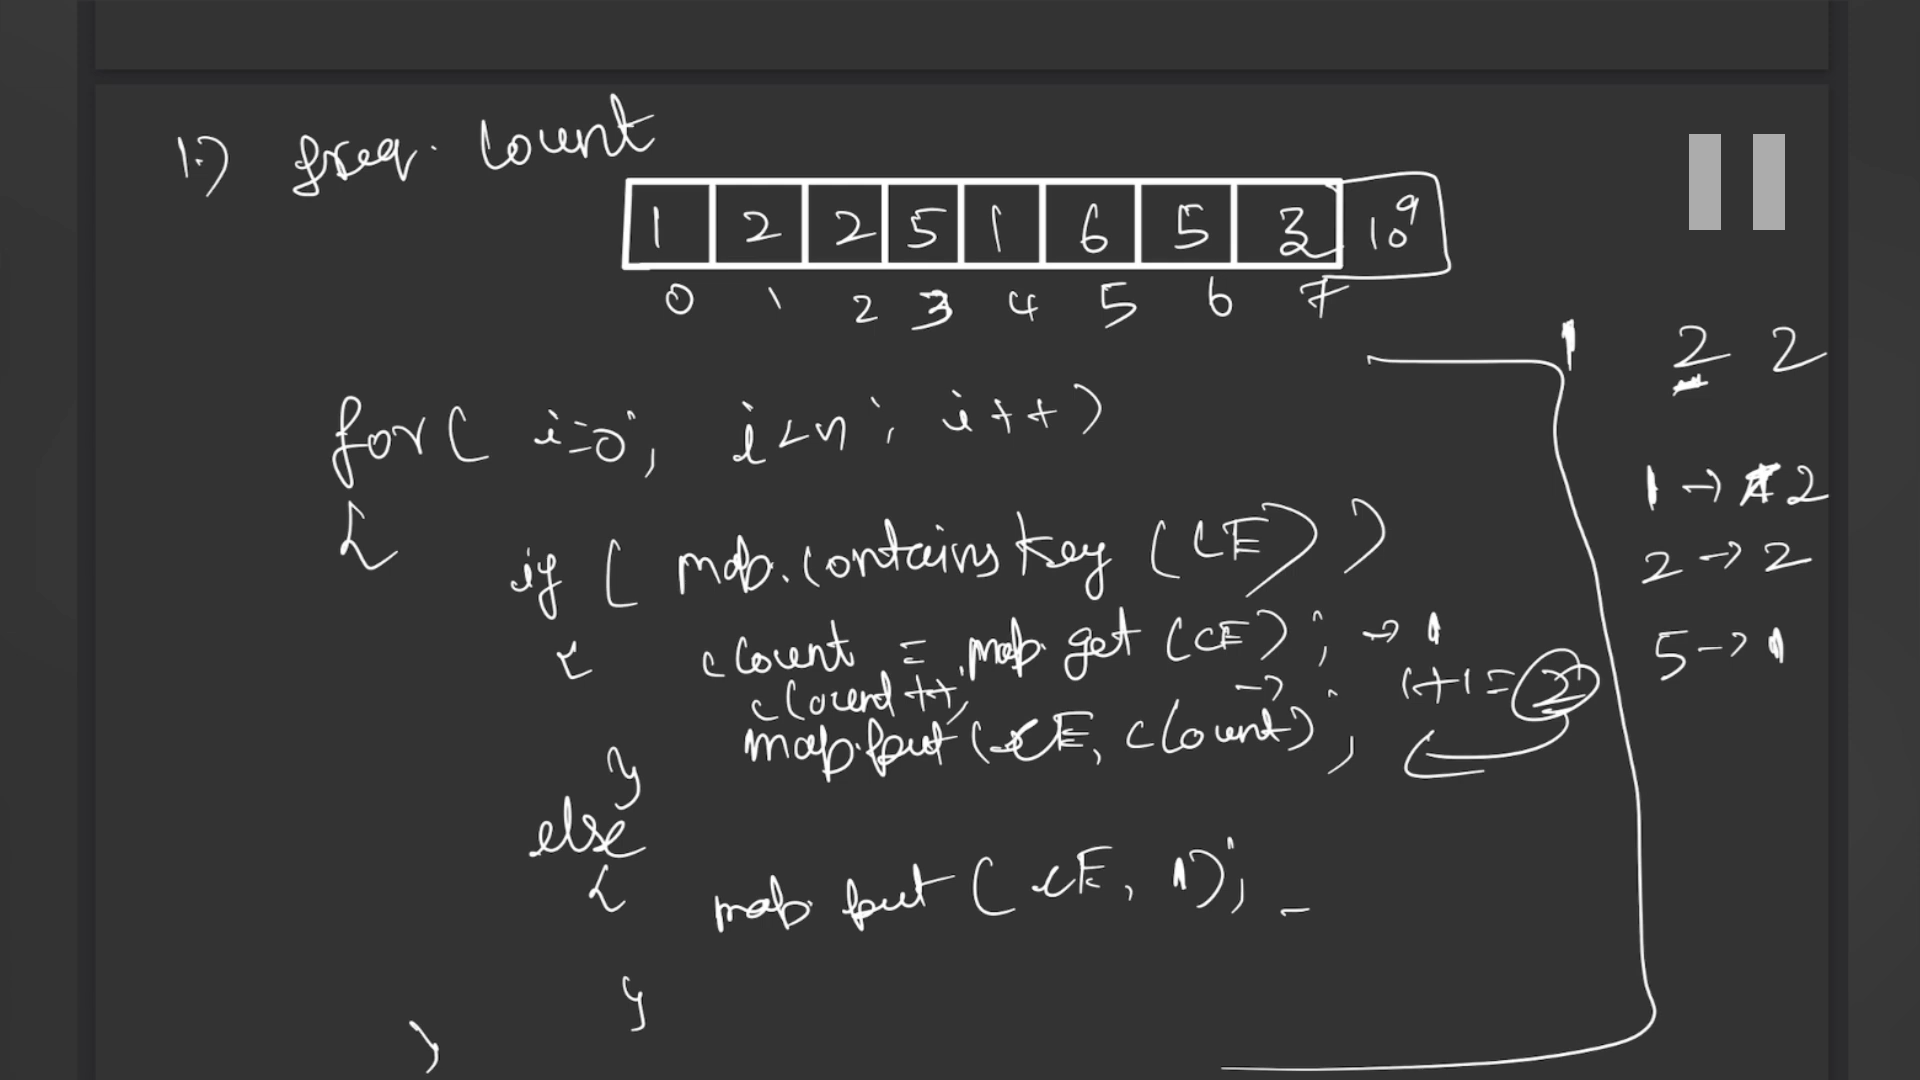 1.) freq. Count
1 2 2 5 1 6 5 3 10^9
0 1 2 3 4 5 6 7
1 2 2
for( i=0; i<n; i++)
{
1 → 2
if ( map.containsKey (CE) )
2 → 2
{ cCount = map.get (CE); → 1
5 → 1
cCount ++; → 1+1 = 2
map.put (CE, cCount);
}
else
{ map.put (CE, 1);
}
}